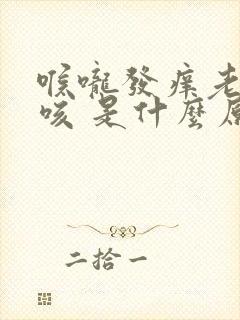 喉嚨發痒老
咳是什麼原
二拾一